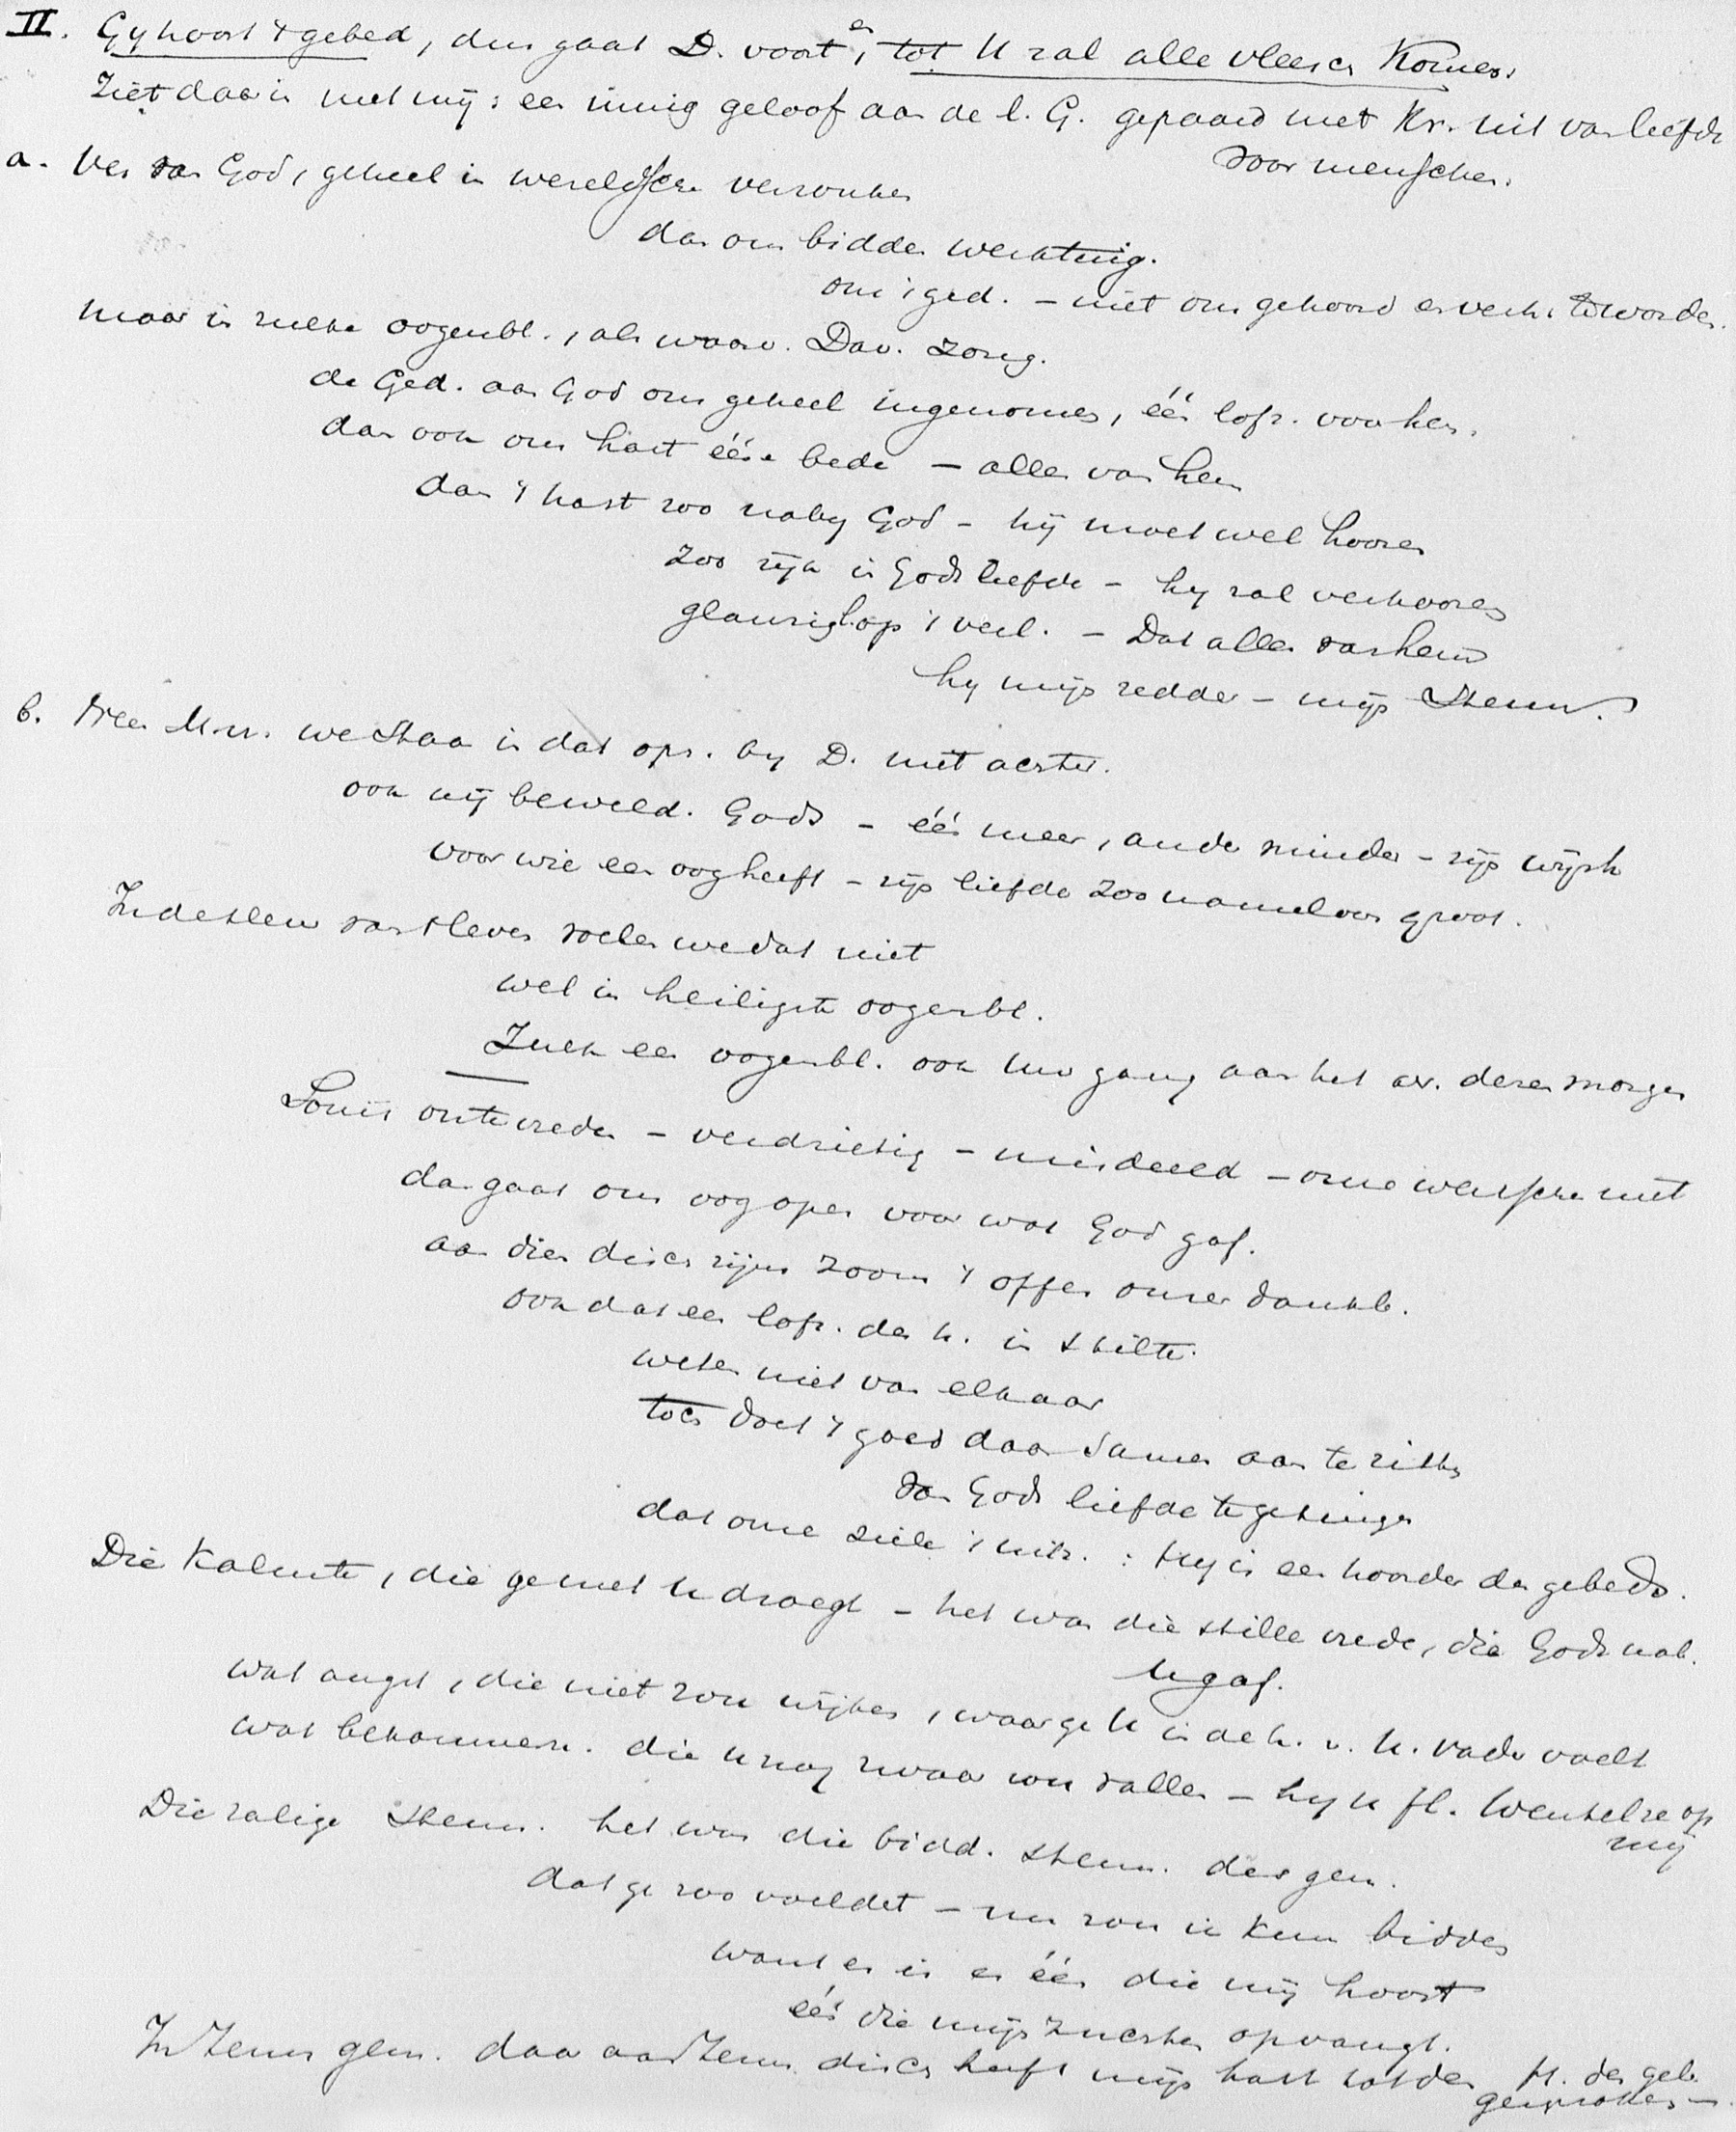 II. Gy hoort 't gebed, dus gaat D. voort, en tot U zal alle vleesch komen.
Ziet daar in met mij: een innig geloof aan de l. G. gepaard met Kr. uit van liefde
voor menschen.
a. Ver van God, geheel in wereldsche verzonken
dan ons bidden werktuig.
ons ged. – niet om gehoord en verh. te worden.
maar in zulke oogenbl., als waarv. Dav. zong.
de Ged. aan God ons geheel ingenomen, één lofz. voor hem.
dan ook ons hart ééne bede – alles van hem
dan 't hart zoo naby God – hij moet wel hooren
zoo rijk in Gods liefde – hy zal verhooren
op 't verl. – Dat alles van hem
hy mijn redder – mijn steun.
b. Neen M.  we staan in dat opz. by D. niet achter.
ook wij beweld. Gods – één meer, ander minder – zijn wijsh
voor wie een oog heeft – zijn liefde zoo nameloos groot.
In de sleur van 't leven voelen we dat niet
wel in heiligste oogenbl.
Zulk een oogenbl. ook uw gang aan het av. dezen morgen
Soms ontevreden – verdrietig – misdeeld – onze wenschen niet
dan gaat ons oog open voor wat God gaf.
aan dien disch zijns zoons 't offer onzer dankb.
ook dat een lofz. der h. in stilte.
weten niet van elkaar
toch doet 't goed daar samen aan te zitten
van Gods liefde te getuigen
dat onze ziele 't uitr.: Hy is een hoorder der gebeds.
Die kalmte, die ge met U droegt – het was die stille vrede, die Gods nab.
U gaf.
wat angst, die niet zou wijken, waar ge U in de h. v. U. vader voelt
wat bekommern. die U nog zwaar zou vallen – hy U fl. Wentel ze op
mij
Die zalige stemm. het was die bidd. stemm. des gem.
dat ge zoo voeldet – nu zou ik kunn bidden
want er is er één die mij hoort
één die mijn zuchten opvangt.
In Jezus gem. daar aan Jezus disch heeft mijn hart tot den H. der geb.
gesproken –